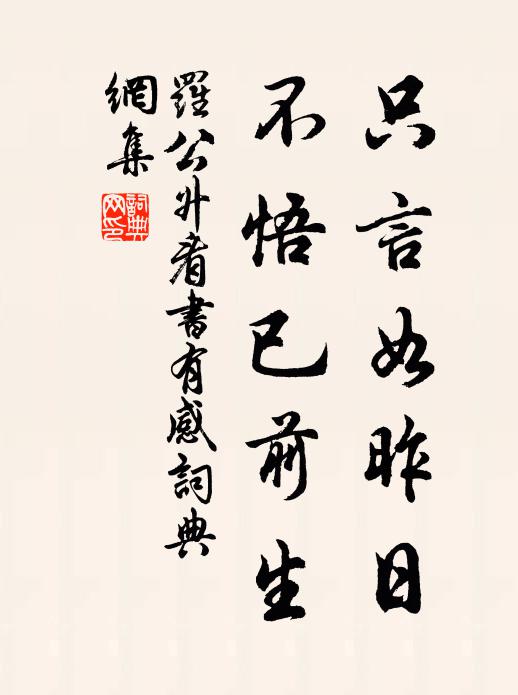 只言如昨日
不悟已前生
羅公升看書有感詞典
網集
詞典
网印